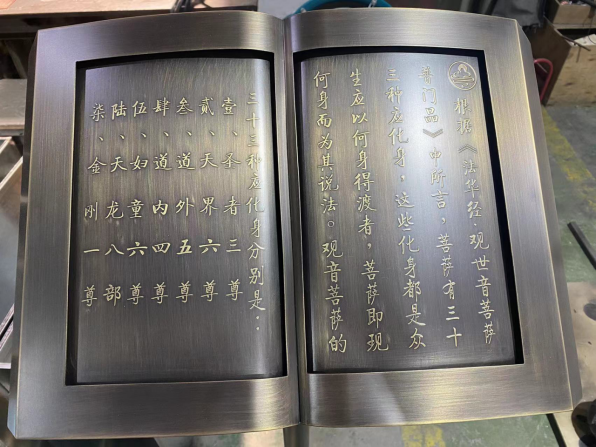 根据《法华经·观世音菩萨
普门品》中所言，菩萨有三十
三种应化身，这些化身都是众
生应以何身得渡者，菩萨即现
何身而为其说法。观音菩萨的
三十三种应化身分别是：
壹、圣者三尊
贰、天界六尊
叁、道外五尊
肆、道内四尊
伍、妇童六尊
陆、天龙八部
柒、金刚一尊